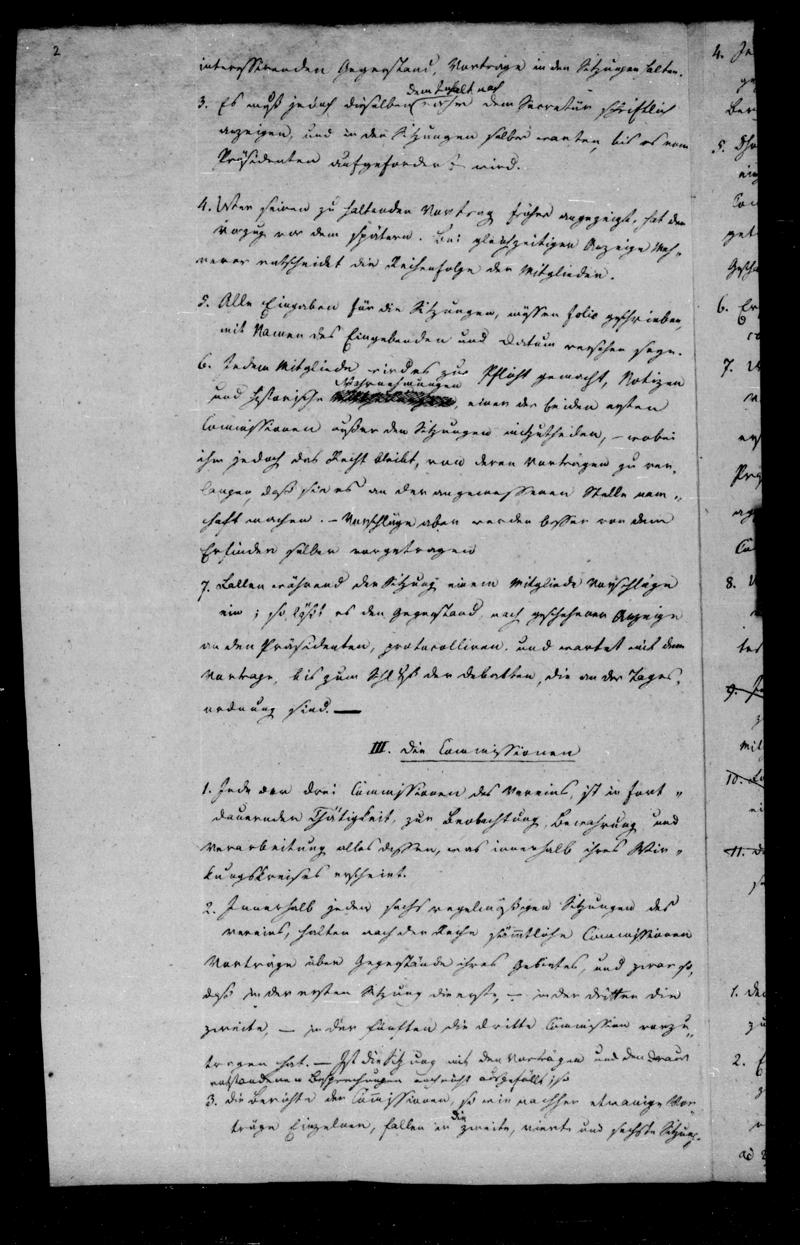 2
interessirenden Gegenstand, Vorträge in den Sitzungen halten.
dem Inhalt nach
3. Es muß jedoch dieselben vorher dem Secretär schriftlich
anzeigen, und in den Sitzungen selber warten, bis es vom
Präsidenten aufgefordert wird.
4. Wer seinen zu haltenden Vortrag früher angezeigt, hat den
Vorzug vor dem spätern. Bei gleichzeitigen Anzeige Meh-
rerer entscheidet die Reihenfolge der Mitglieder.
5. Alle Eingaben für die Sitzungen, müssen folio geschrieben,
mit Namen des Eingebenden und Datum versehen seyn.
6. Jedem Mitgliede wird es zur Pflicht gemacht, Notizen
Wahrnehmungen
und historische , einer der beiden ersten
Commissionen außer den Sitzungen mitzutheilen, – wobei
ihm jedoch das Recht bleibt, von deren Vorträgen zu ver-
langen daß sie es an der angemessenen Stelle nam-
haft machen. – Vorschläge aber werden besser von dem
Erfinder selber vorgetragen
7. Fallen während der Sitzung einem Mitgliede Vorschläge
ein; so läßt es den Gegenstand, nach geschehener Anzeige
an den Präsidenten, protocolliren, und wartet mit dem
Vortrage, bis zum Schluß der Debatten, die an der Tages-
ordnung sind. —
III. Die Commissionen
1. Jede der drei Commissionen des Vereins, ist in fort-
dauernder Thätigkeit, zur Beobachtung, Bewahrung und
Verarbeitung alles dessen, was innerhalb ihres Wir-
kungskreises erscheint.
2. Innerhalb jeder sechs regelmäßigen Sitzungen des
Vereins, halten nach der Reihe sämmtliche Commissionen
Vorträge über Gegenstände ihres Gebietes, und zwar so,
daß in der ersten Sitzung die erste, – in der dritten die
zweite, – in der fünften die dritte Commission vorzu-
tragen hat. – Ist die Sitzung mit den Vorträgen und den daraus
entstandenen Besprechungen noch nicht ausgefüllt; so
3. Die Berichte der Commissionen, so wie nachher etwanige Vor-
die
träge Einzelner, fallen in zweite, vierte und sechste Sitzung.
4.
5.
6.
7.
8.
9.
10.
11.
1.
2.